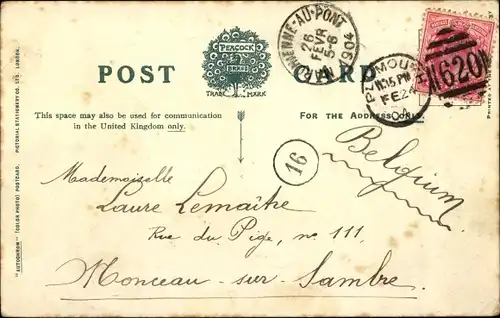 POST CARD
PEACOCK
BRAND
TRADE MARK
This space may also be used for communication
in the United Kingdom only.
FOR THE ADDRESS ONLY.
"AUTOCHROM" (COLOR PHOTO) POSTCARD.
PICTORIAL STATIONERY CO. LTD. LONDON.
-AU-PONT
26
FEVR
5-6
1904
PLYMOUTH
FE 24
04
620
16
Belgium
Mademoiselle
Laure Lemaître
Rue du Pige, no. 111,
Monceau-sur-Sambre.